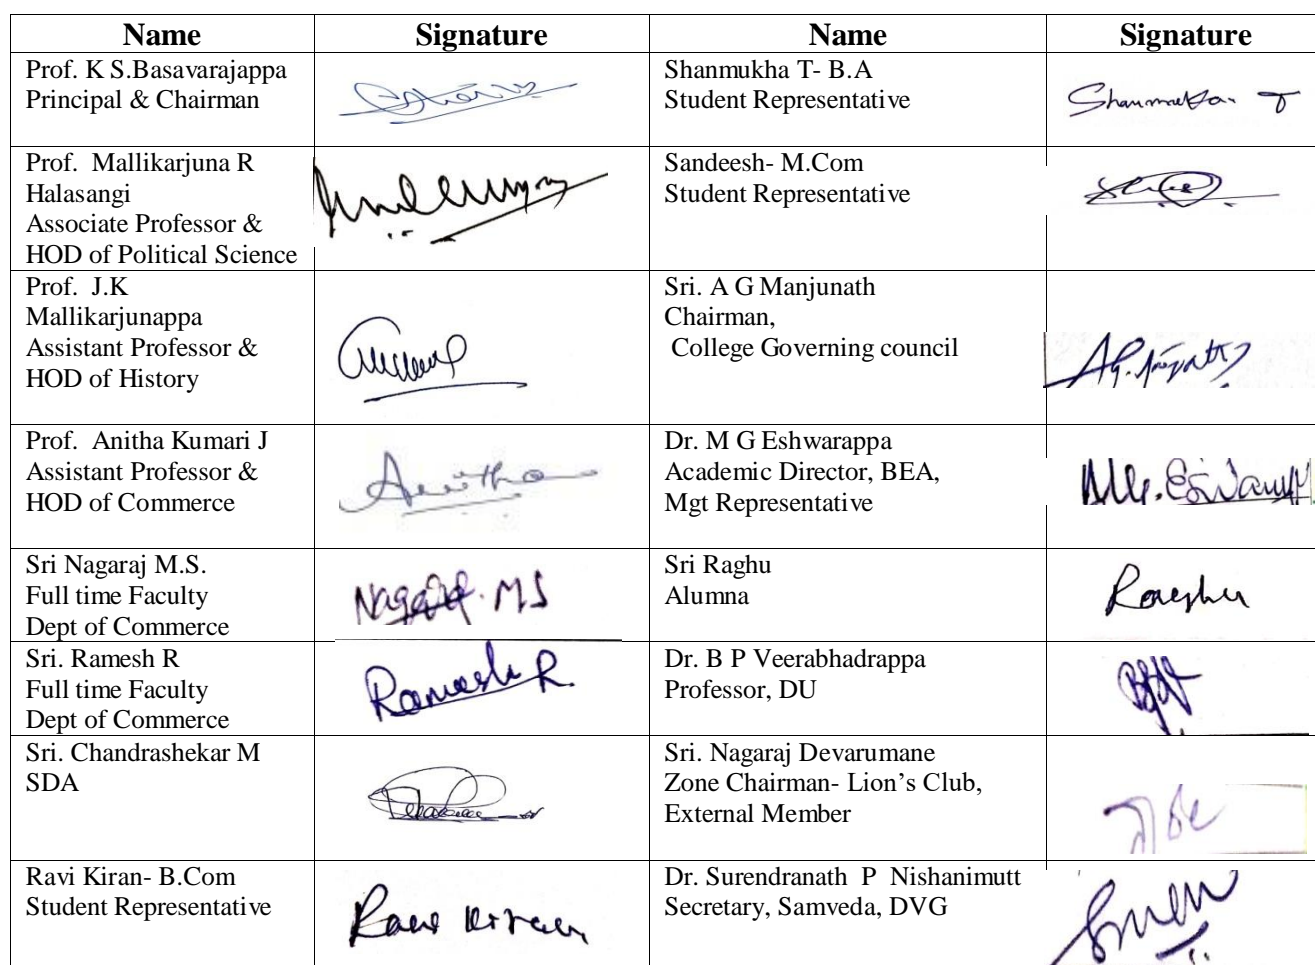 Name Signature Name Signature
Prof. K S.Basavarajappa
Principal & Chairman
Shanmukha T- B.A
Student Representative
Shanmukha. T
Prof. Mallikarjuna R
Halasangi
Associate Professor &
HOD of Political Science
Sandeesh- M.Com
Student Representative
Prof. J.K
Mallikarjunappa
Assistant Professor &
HOD of History
Sri. A G Manjunath
Chairman,
College Governing council
Prof. Anitha Kumari J
Assistant Professor &
HOD of Commerce
Anitha
Dr. M G Eshwarappa
Academic Director, BEA,
Mgt Representative
Sri Nagaraj M.S.
Full time Faculty
Dept of Commerce
Nagaraj. M S
Sri Raghu
Alumna
Raghu
Sri. Ramesh R
Full time Faculty
Dept of Commerce
Ramesh R.
Dr. B P Veerabhadrappa
Professor, DU
Sri. Chandrashekar M
SDA
Sri. Nagaraj Devarumane
Zone Chairman- Lion’s Club,
External Member
Ravi Kiran- B.Com
Student Representative
Ravi Kiran
Dr. Surendranath P Nishanimutt
Secretary, Samveda, DVG